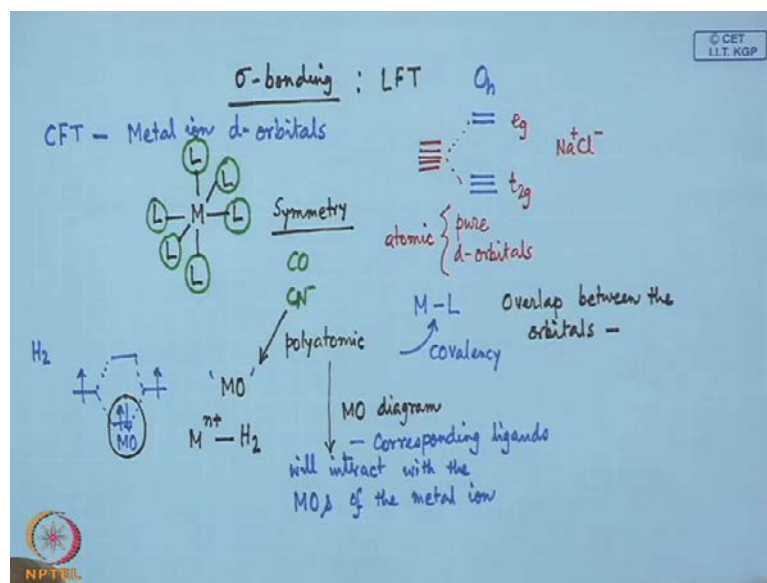 © CET
I.I.T. KGP
σ-bonding : LFT
Oh
CFT – Metal ion d-orbitals
eg
Na⁺Cl⁻
t2g
L
L
L
L M L
L
L
Symmetry
atomic { pure
d-orbitals
CO
CN⁻
M–L
Overlap between the
orbitals –
polyatomic
covalency
H2
'MO'
MO
Mⁿ⁺–H2
MO diagram
– Corresponding ligands
will intract with the
MOs of the metal ion
NPTEL